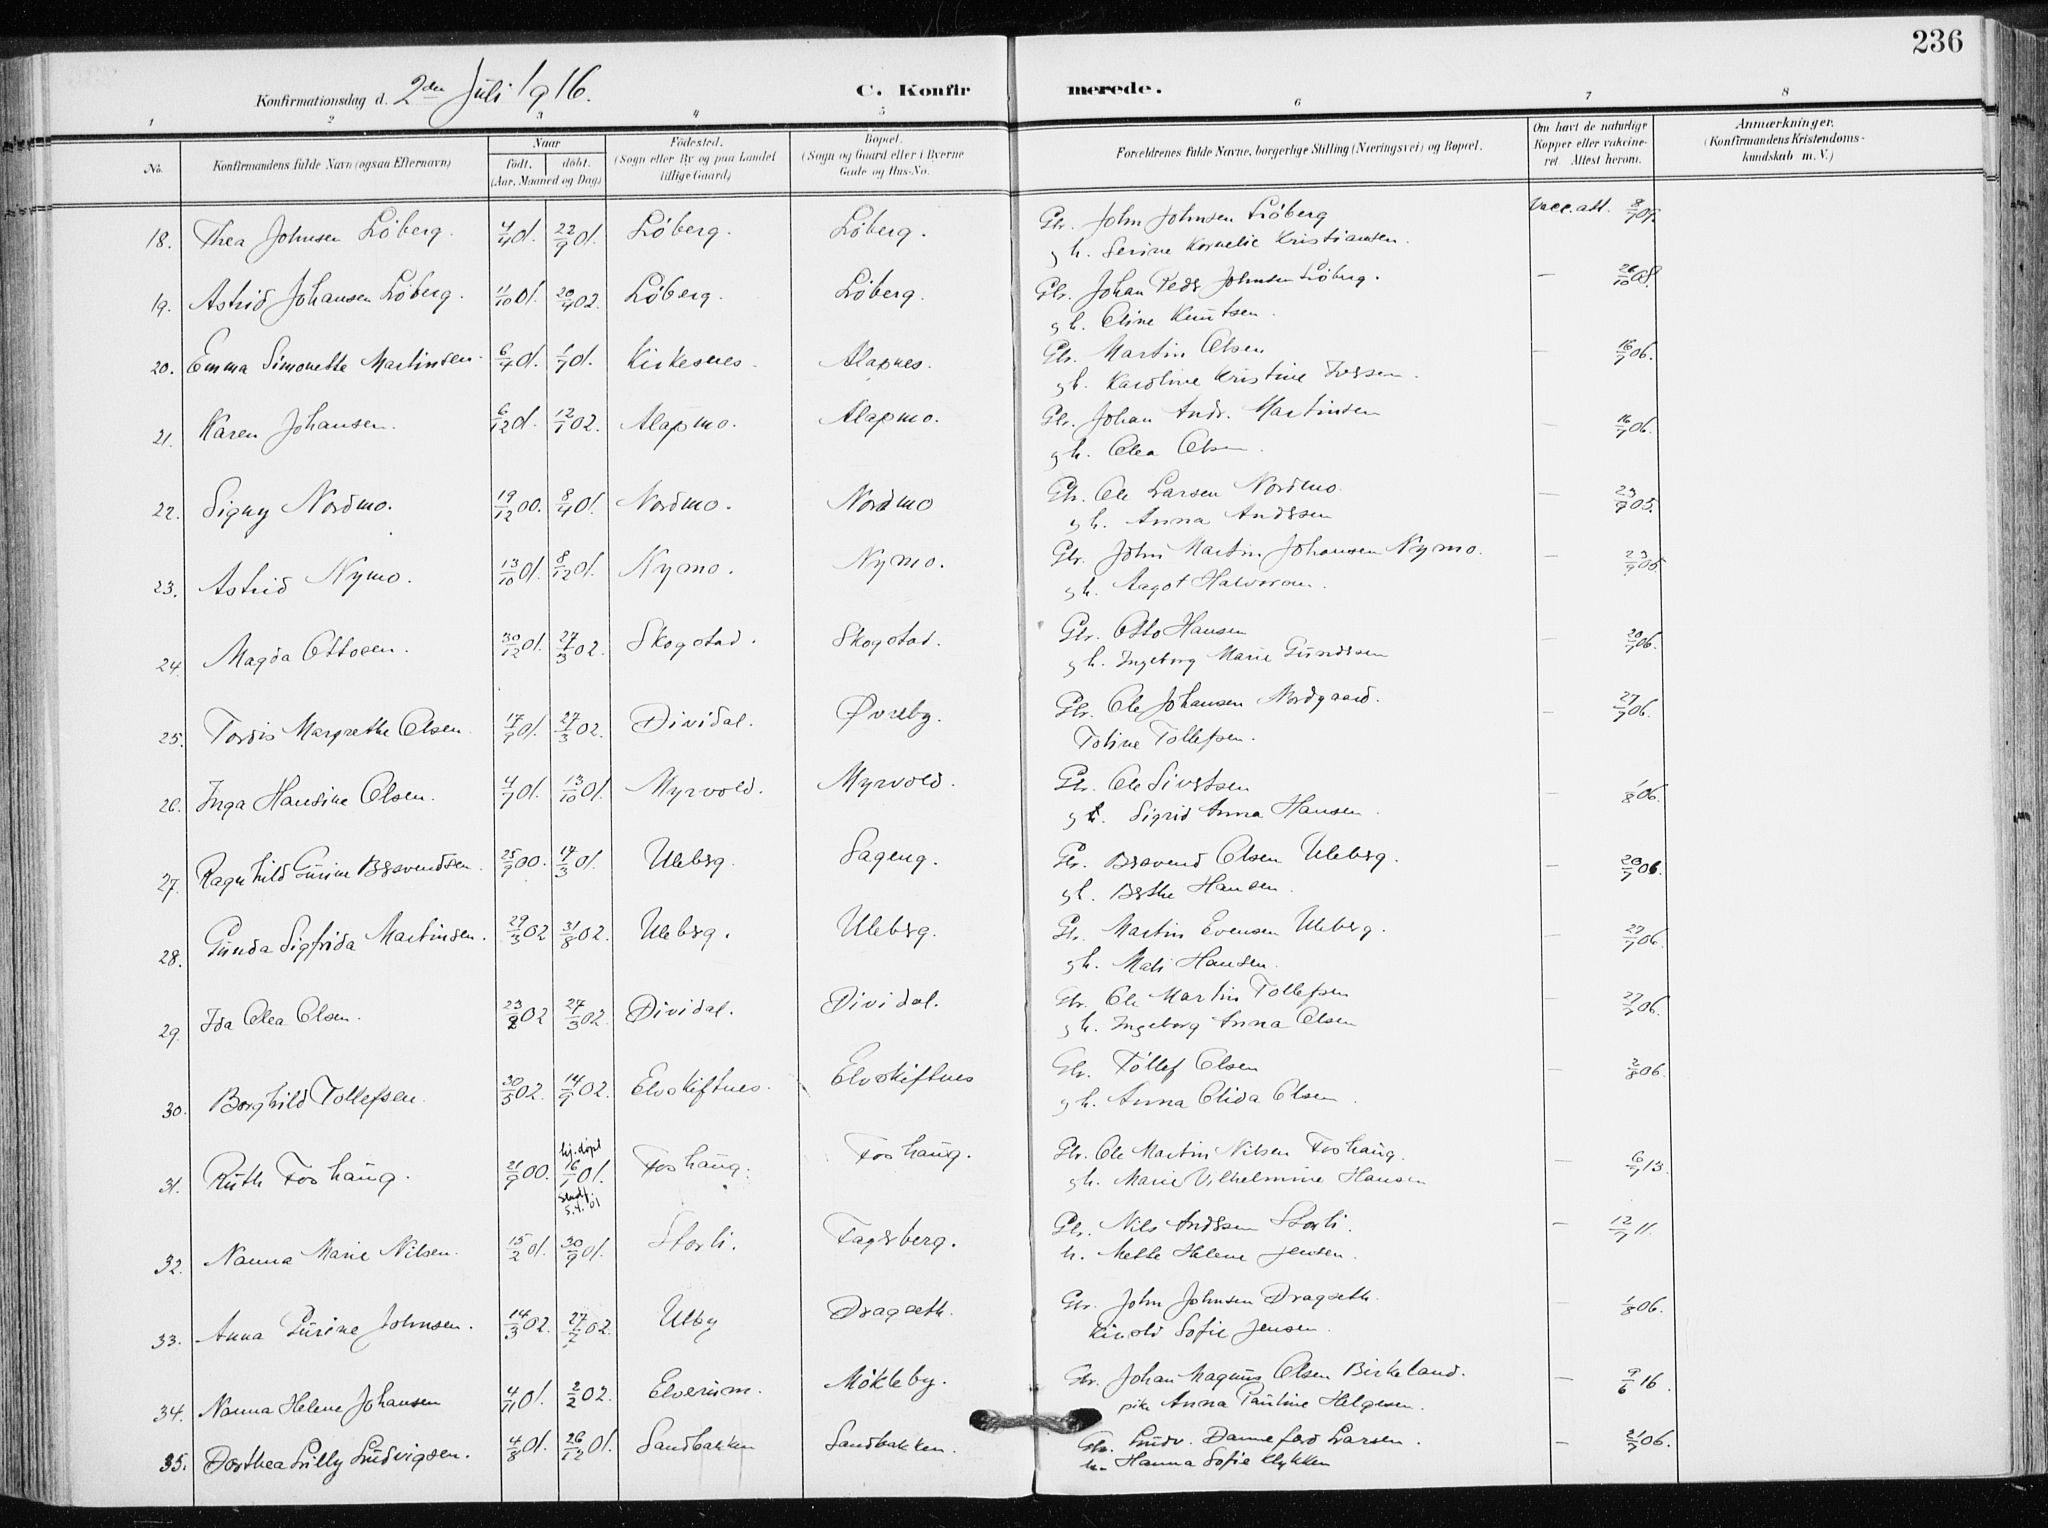 236
Konfirmationsdag d. 2den Juli 1916. C. Konfirmerede.
1 2 3 4 5 6 7 8
No. Konfirmandens fulde Navn (ogsaa Efternavn) Naar født. døbt. (Aar, Maaned og Dag) Fødested. (Sogn eller By og paa Landet tillige Gaard) Bopæl. (Sogn og Gaard eller i Byerne Gade og Hus-No. Forældrenes fulde Navne, borgerlige Stilling (Næringsvei) og Bopæl. Om havt de naturlige Kopper eller vakcineret Attest herom. Anmærkninger. (Konfirmandens Kristendomskundskab m. V.)
18. Thea Johnsen Løberg. 4/4 01. 22/9 01. Løberg. Løberg. Gbr. John Johnsen Løberg Vacc. att. 8/9 09.
g h. Serine Kornelie Kristiansen.
19. Astrid Johansen Løberg. 11/10 01. 20/4 02. Løberg. Løberg. Gbr. Johan Peder Johnsen Løberg. — 26/10 08.
g h. Oline Knutsen.
20. Emma Simonette Martinsen. 6/4 01. 1/7 01. Kirkesnes. Alapnes. Gbr. Martin Olsen — 16/7 06.
g h. Karoline Kristine Iversen.
21. Karen Johansen. 6/12 01. 12/1 02. Alapmo. Alapmo. Gbr. Johan Andr. Martinsen — 16/7 06.
g h. Olea Olsen.
22. Signy Nordmo. 19/12 00. 8/4 01. Nordmo. Nordmo Gbr. Ole Larsen Nordmo. — 23/9 05.
g h. Anna Anderssen
23. Astrid Nymo. 13/10 01. 8/12 01. Nymo. Nymo. Gbr. John Martin Johansen Nymo. — 23/9 05
g h. Aagot Halvorsen.
24. Magda Ottosen. 30/12 01. 27/3 02. Skogstad. Skogstad. Gbr. Otto Hansen — 20/7 06.
g h. Ingeborg Marie Gundersen
25. Tordis Margrethe Olsen. 17/9 01. 27/3 02. Dividal. Øvreby. Gbr. Ole Johansen Nordgaard. — 27/7 06.
Toline Tollefsen.
26. Inga Hansine Olsen. 4/7 01. 13/10 01. Myrvold. Myrvold. Gbr. Ole Sivertsen — 1/8 06.
g h. Sigrid Anna Hansen.
27. Ragnhild Gurine Brævendsen. 25/9 00. 17/3 01. Uleberg. Sageng. Gbr. Brævend Olsen Uleberg. — 20/7 06.
g h. Berthe Hansen.
28. Gunda Sigfrida Martinsen. 29/3 02 31/8 02. Uleberg. Uleberg. Gbr. Martin Evensen Uleberg. — 27/7 06.
g h. Mali Hansen.
29. Ida Olea Olsen. 23/2 02 27/3 02. Dividal. Dividal. Gbr. Ole Martin Tollefsen — 27/7 06.
g h. Ingeborg Anna Olsen
30. Borghild Tollefsen. 30/5 02. 14/9 02. Elveskiftnes. Elveskiftnes Gbr. Tollef Olsen — 2/8 06.
g h. Anna Olida Olsen.
31. Ruth Foshaug. 21/9 00. hj. døpt 16/1 01. Stadf. 5.4.01 Foshaug. Foshaug. Gbr. Ole Martin Nilsen Foshaug. — 6/7 13.
g h. Marie Vilhelmine Hansen
32. Nanna Marie Nilsen. 15/2 01. 30/9 01. Storli. Fagerberg. Gbr. Nils Anderssen Storli. — 12/7 11.
h. Mette Helene Jensen.
33. Anna Purine Johnsen. 14/3 02. 27/7 02. Utby Dragseth. Gbr. John Johnsen Dragseth. — 1/8 06.
Kinold Sofie Jensen.
34. Nanna Helene Johansen 4/11 01. 2/2 02. Elverum. Møkleby. Gbr. Johan Magnus Olsen Birkeland. — 9/6 16.
pike Anna Pauline Helgesen.
35. Dorthea Lilly Ludvigsen. 4/8 01. 26/12 01. Sandbakken Sandbakken. Gbr. Ludv. Danneford Larsen. — 21/7 06.
h. Hanna Sofie Klykken